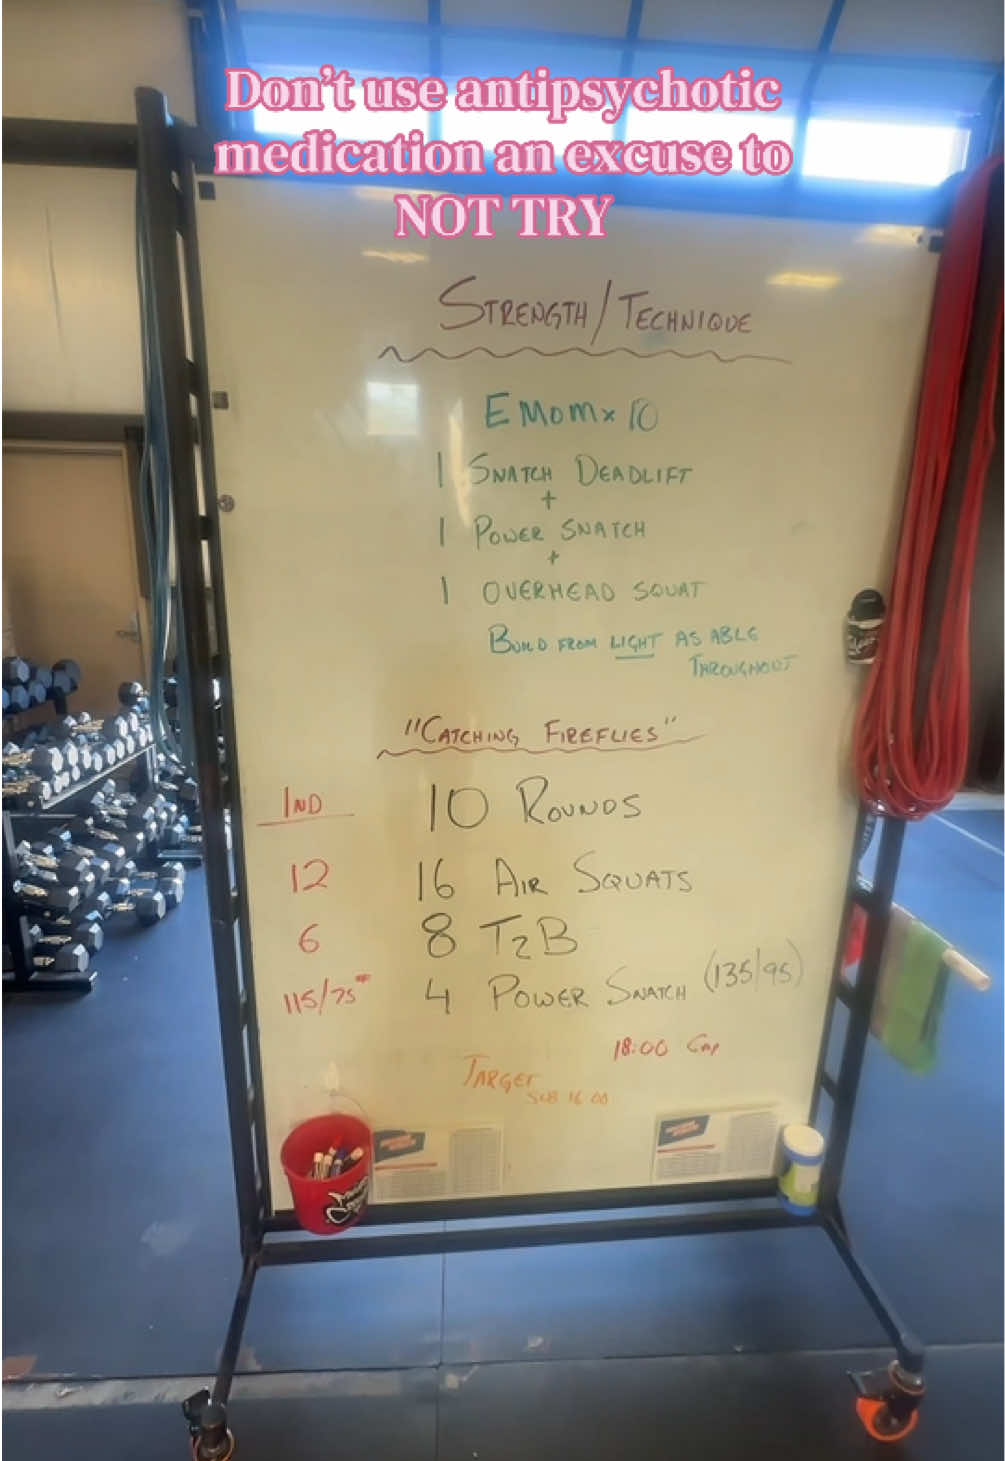 Don't use antipsychotic
medication an excuse to
NOT TRY
STRENGTH/TECHNIQUE
EMOM x 10
1 SNATCH DEADLIFT
+
1 POWER SNATCH
+
1 OVERHEAD SQUAT
BUILD FROM LIGHT AS ABLE
THROUGHOUT
"CATCHING FIREFLIES"
IND 10 ROUNDS
12 16 AIR SQUATS
6 8 T2B
115/75# 4 POWER SNATCH (135/95)
18:00 CAP
TARGET
SUB 16:00